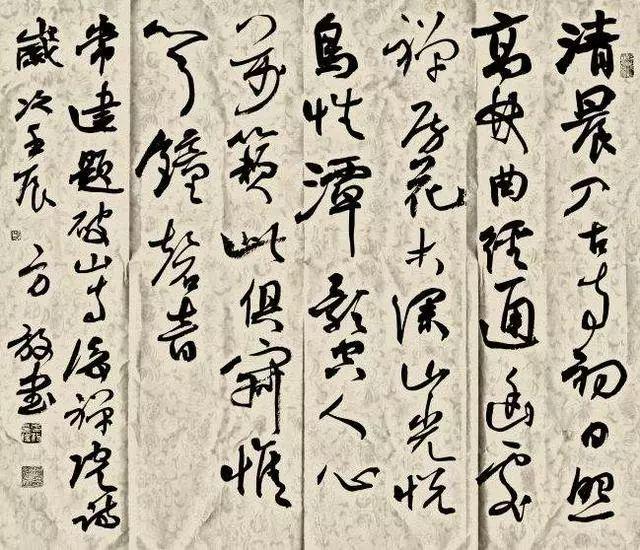 清晨入古寺初日照
高林曲徑通幽處
禅房花木深山光悦
鳥性潭影空人心
萬籁此俱寂惟
聞鐘磬音
常建題破山寺後禅院詩
歲次壬辰 方放書